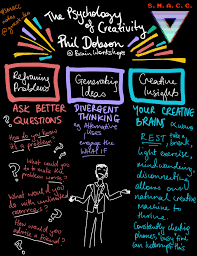 S.M.A.C.C.
The Psychology
of Creativity
Phil Dobson
@ Brain Workshops
Reframing
Problems
Generating
Ideas
Creative
Insights
ASK BETTER
QUESTIONS
How do you know
it's a problem?
What could you
do to make the
problem worse?
What would you
do with unlimited
resources?
How would you
advise a friend?
DIVERGENT
THINKING
eg Alternative
Uses
engage the
WHAT IF
YOUR CREATIVE
BRAIN
REST, break,
light exercise,
mindwandering,
disconnecting
allows our
natural creative
machine to
thrive.
Constantly checking
phones, every time
can interrupt this